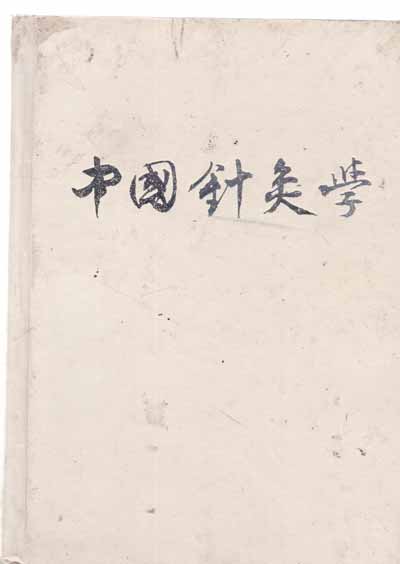 中國針灸學